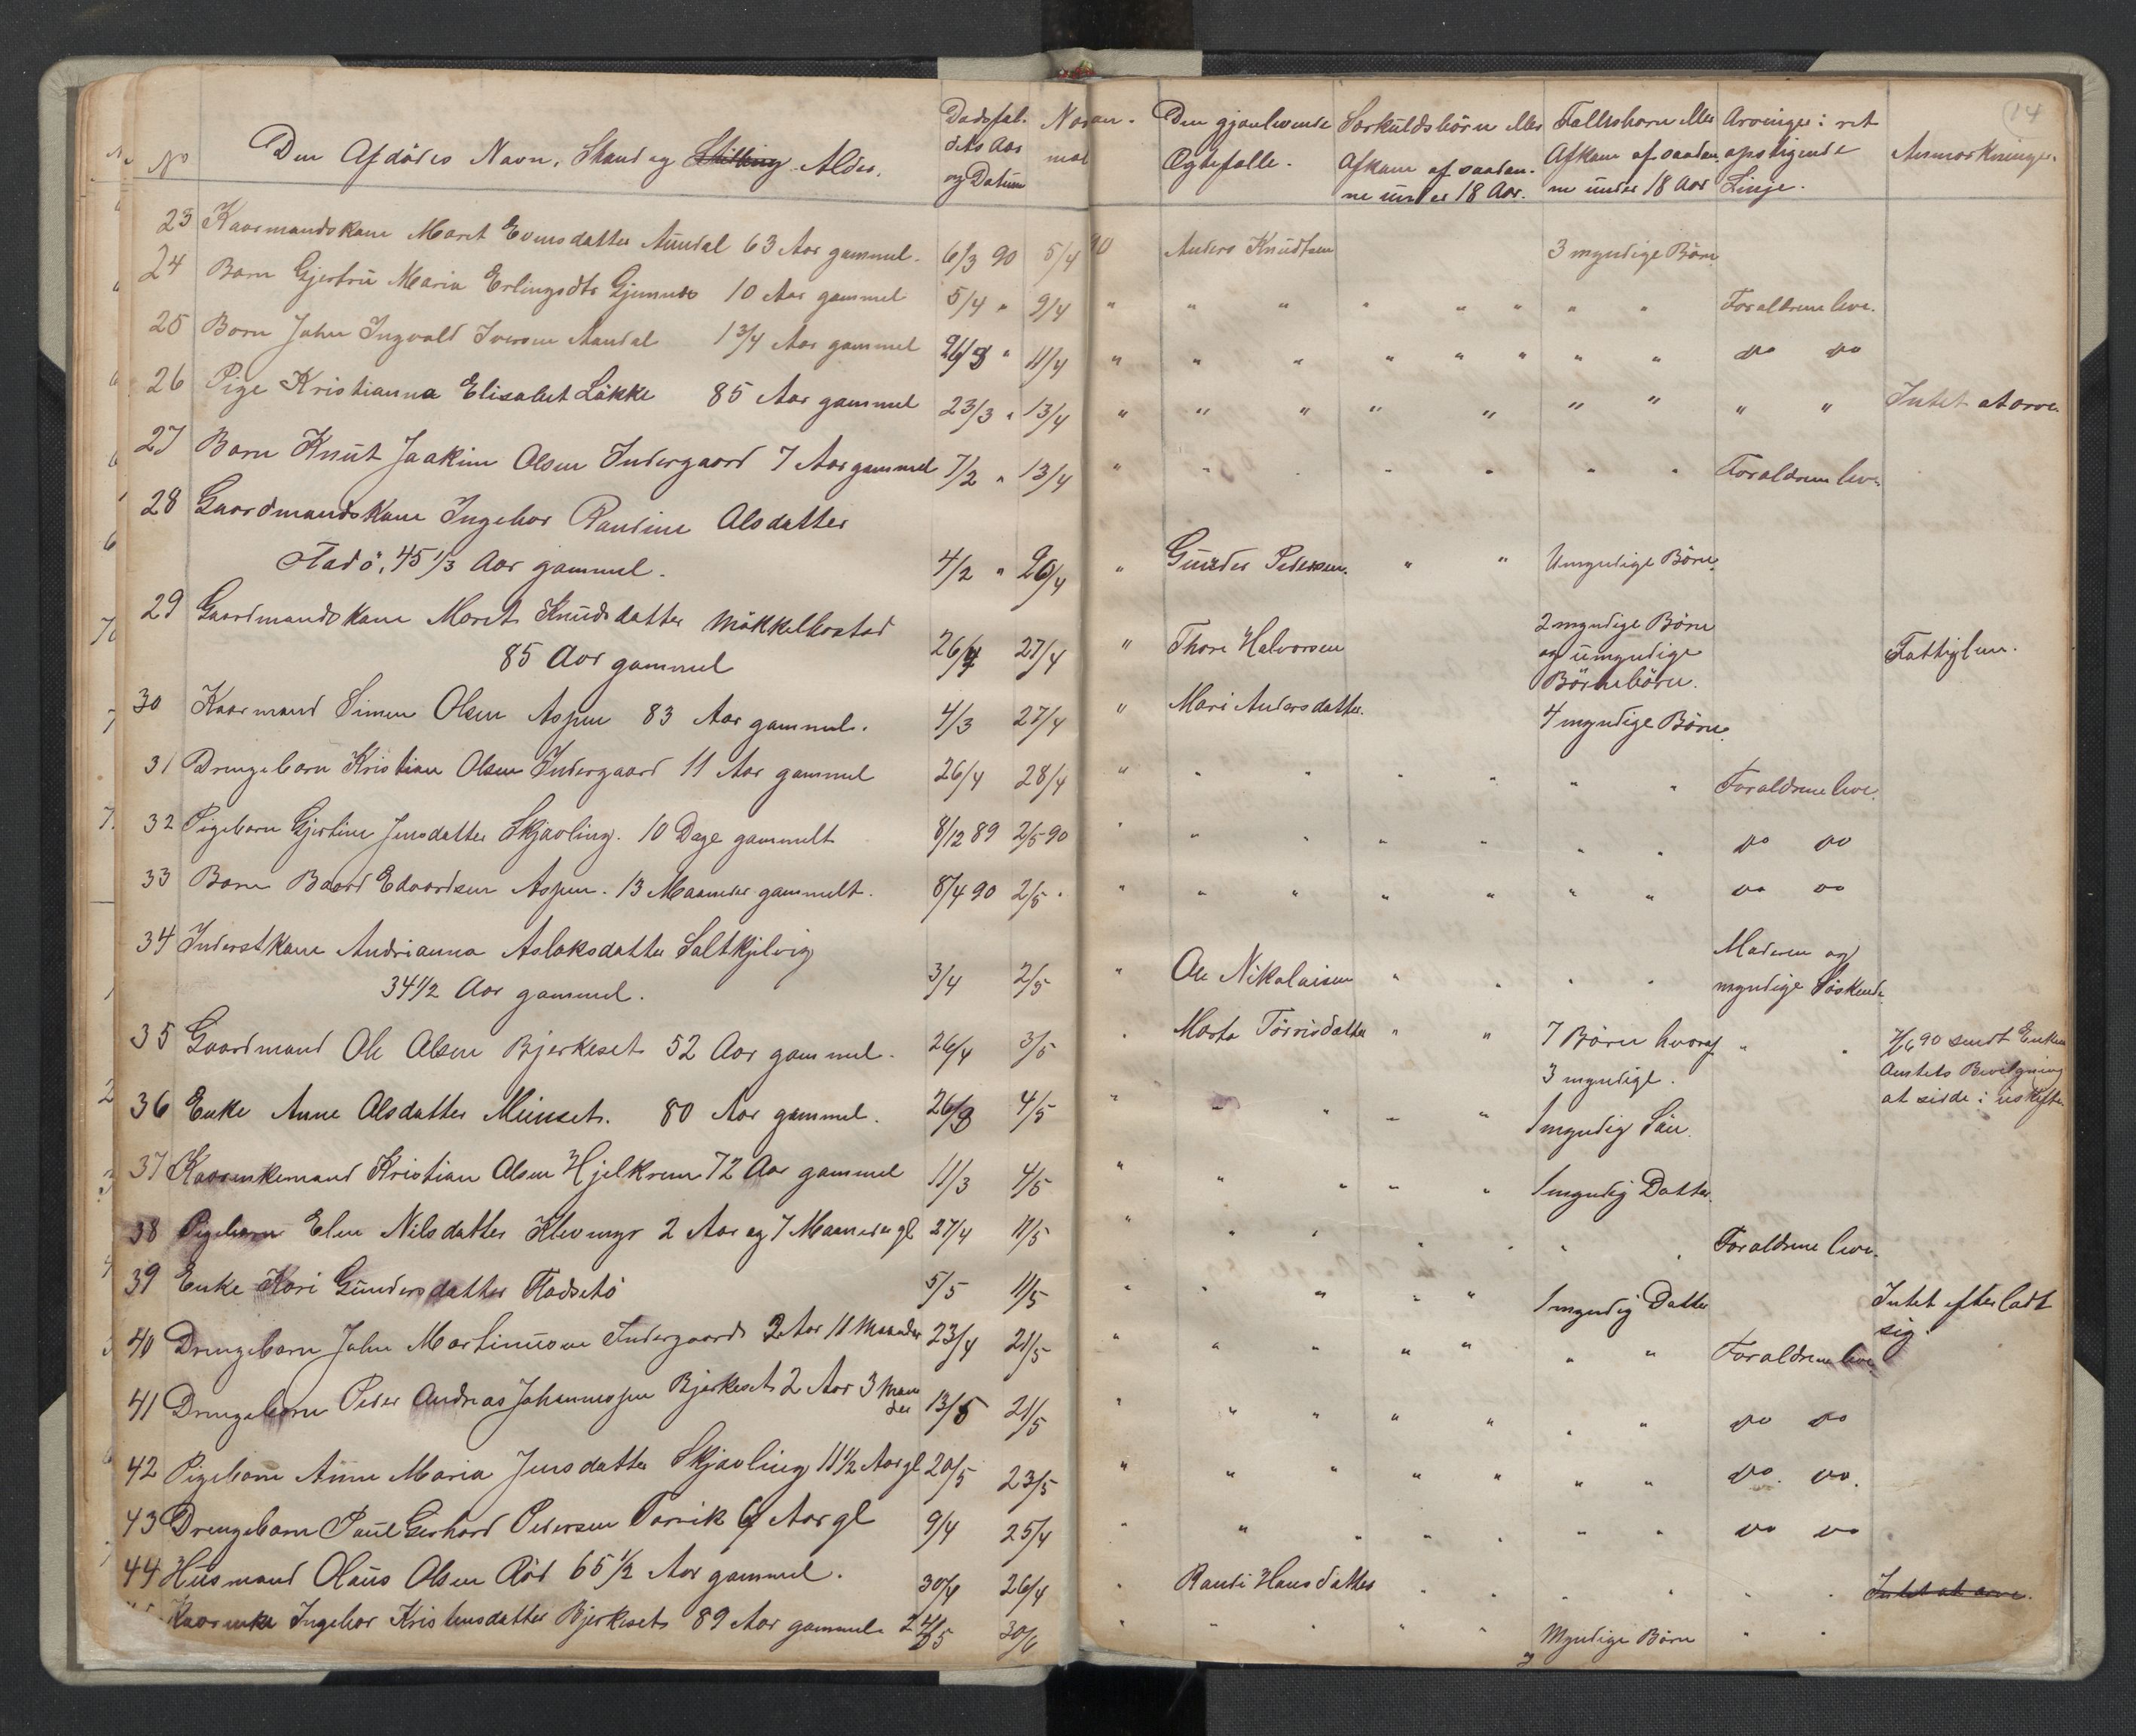 14
No Den Afdødes Navn, Stand og Stilling Alder. Dødsfal- Naaran- Den gjenlevende Særkuldsbörn eller Fællesbörn eller Arvinger i ret Anmærkninger.
dets Aar mel Ægtefælle. Afkom af saadan- Afkom af saadan- opstigende
og Datum ne under 18 Aar. ne under 18 Aar Linje.
23 Kaarmandskone Marit Evensdatter Aandal 63 Aar gammel. 6/3 90 5/4 90 Anders Knudtsen 3 myndige Börn
24 Barn Gjertrü Maria Erlingsdtr Gjemnes 10 Aar gammel 5/4 " 9/4 " " " " " " " " Forældrene leve.
25 Barn John Ingvald Iversen Aandal 1 3/4 Aar gammel 26/3 " 11/4 " " " " " " " " do do
26 Pige Kristianna Elisabet Lökke 85 Aar gammel 23/3 " 13/4 " " " " " " " " " Intet at arve.
27 Barn Knut Joakim Olsen Indergaard 7 Aar gammel 7/2 " 13/4 " " " " " " " Forældrene leve
28 Gaardmandskone Ingebor Pauline Olsdatter
Fladö, 45 1/3 Aar gammel. 4/2 " 26/4 " Gunder Pedersen. " " Umyndige Börn.
29 Gaardmandskone Marit Knudsdatter Mökkelbostad 2 myndige Börn
85 Aar gammel 26/4 27/4 " Thore Halvorsen og umyndige Fattiglem.
Börnebörn.
30 Kaarmand Simen Olsen Aspen 83 Aar gammel. 4/3 27/4 " Mari Andersdatter. 4 myndige Börn.
31 Drengebarn Kristian Olsen Indergaard 11 Aar gammel 26/4 28/4 " " " " " " Forældrene leve.
32 Pigebarn Gjertine Jensdatter Skjævling. 10 Dage gammelt 8/12 89 2/5 90 " " " " " " " do do
33 Barn Baard Edvardsen Aspen. 13 Maaneder gammelt. 8/4 90 2/5 " " " " " " " " do do
34 Inderstkone Andrianna Aslaksdatter Saltkjelvig Moderen og
34 1/2 Aar gammel. 3/4 2/5 " Ole Nikolaisen " " " " myndige Söskende
35 Gaardmand Ole Olsen Bjerkeset 52 Aar gammel. 26/4 3/5 " Marta Törrisdatter " " 7 Börn hvoraf " " 7/6 90 sendt Enken
3 myndige. Amtets Bevilgning
at sidde i uskiftet
36 Enke Anne Olsdatter Mimset. 80 Aar gammel. 26/3 4/5 " " " " " 1 myndig Sön.
37 Kaarenkemand Kristian Olsen Hjelkrem 72 Aar gammel 11/3 4/5 " " " " " 1 myndig Datter.
38 Pigebarn Elen Nilsdatter Klevmyr 2 Aar og 7 Maaneder gl 27/4 11/5 " " " " " " " Forældrene leve.
39 Enke Kari Gundersdatter Fladsetö 5/5 11/5 " " " " " 1 myndig Datter Intet efterladt
sig.
40 Drengebarn John Martinusen Indergaard 2 Aar 11 Maaneder 23/4 21/5 " " " " " " " Forældrene leve
41 Drengebarn Peder Andreas Johannessen Bjerkeset 2 Aar 3 Maaneder 13/5 21/5 " " " " " " " do do
42 Pigebarn Anne Maria Jensdatter Skjævling 11 1/2 Aar gl 20/5 23/5 " " " " " " " do. do.
43 Drengebarn Paul Gerhard Pedersen Torvik 6 Aar gl 9/4 25/4 " " " " " " " do do
44 Husmand Olaus Olsen Röd 65 1/2 Aar gammel. 30/4 26/4 " Randi Hansdatter " " " " " " Intet at arve.
Kaarenke Ingebor Kristensdatter Bjerkeset 89 Aar gammel 24/5 30/6 " " " " " Myndige Börn " "